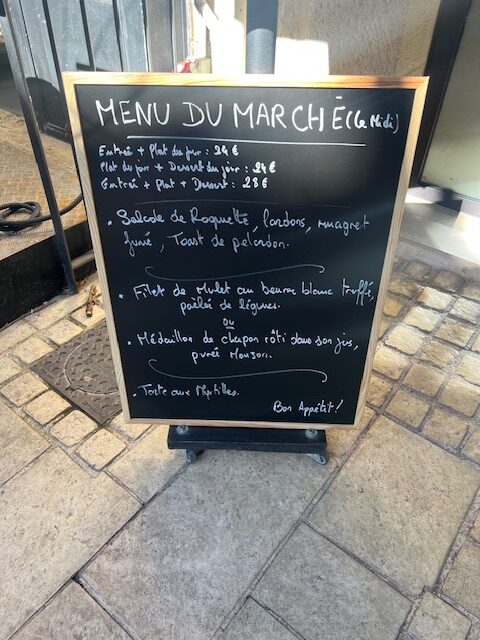 MENU DU MARCHÉ (Le Midi)
Entrée + Plat du jour : 24 €
Plat du jour + Dessert du jour : 24 €
Entrée + Plat + Dessert : 28 €
• Salade de Roquette, lardons, magret
fumé, Toast de pelardon.
• Filet de Mulet au beurre blanc truffé,
poêlée de légumes.
ou
• Médaillon de chapon rôti dans son jus,
purée Maison.
• Tarte aux Myrtilles.
Bon Appétit !